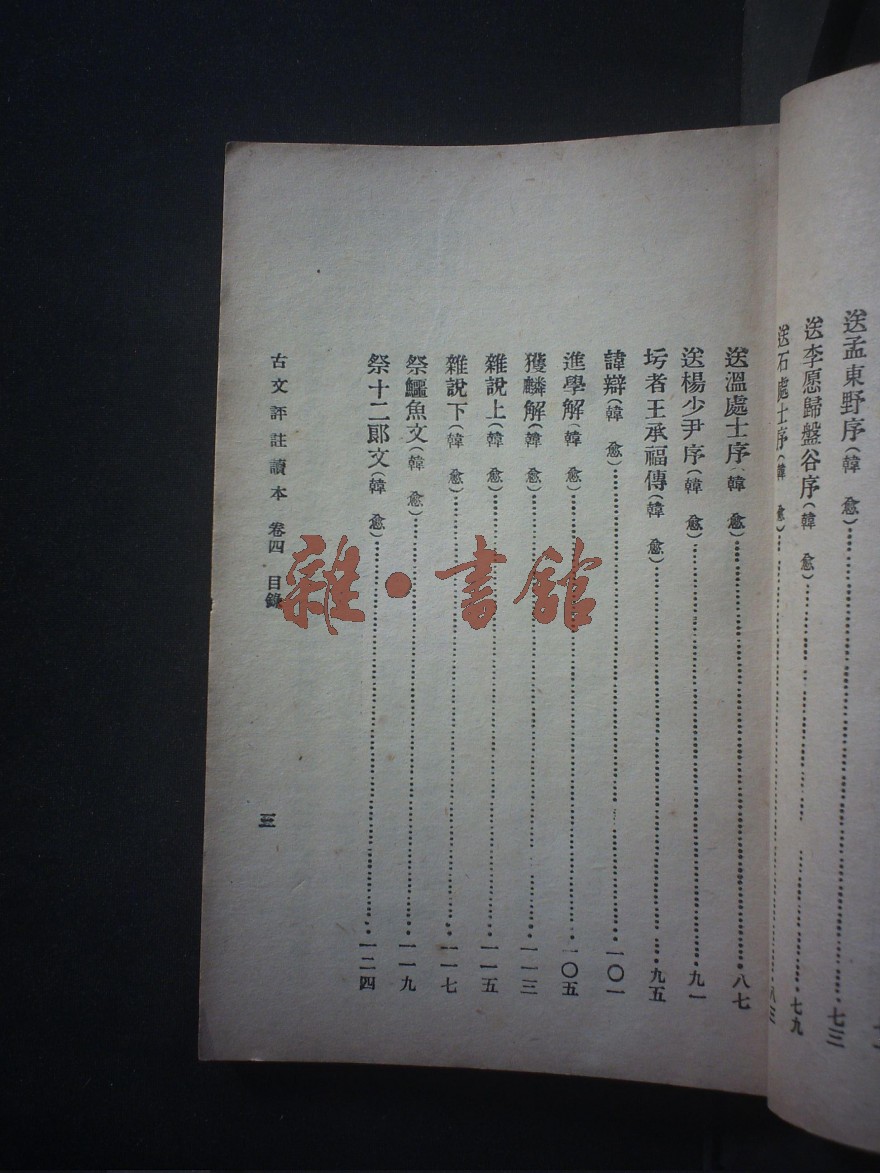 送孟東野序(韓 愈)……七三
送李愿歸盤谷序(韓 愈)……七九
送石處士序(韓 愈)……八三
送溫處士序(韓 愈)……八七
送楊少尹序(韓 愈)……九一
圬者王承福傳(韓 愈)……九五
諱辯(韓 愈)……一〇一
進學解(韓 愈)……一〇五
獲麟解(韓 愈)……一一三
雜說上(韓 愈)……一一五
雜說下(韓 愈)……一一七
祭鱷魚文(韓 愈)……一一九
祭十二郞文(韓 愈)……一二四
古文評註讀本 卷四 目錄 三
雜·書館